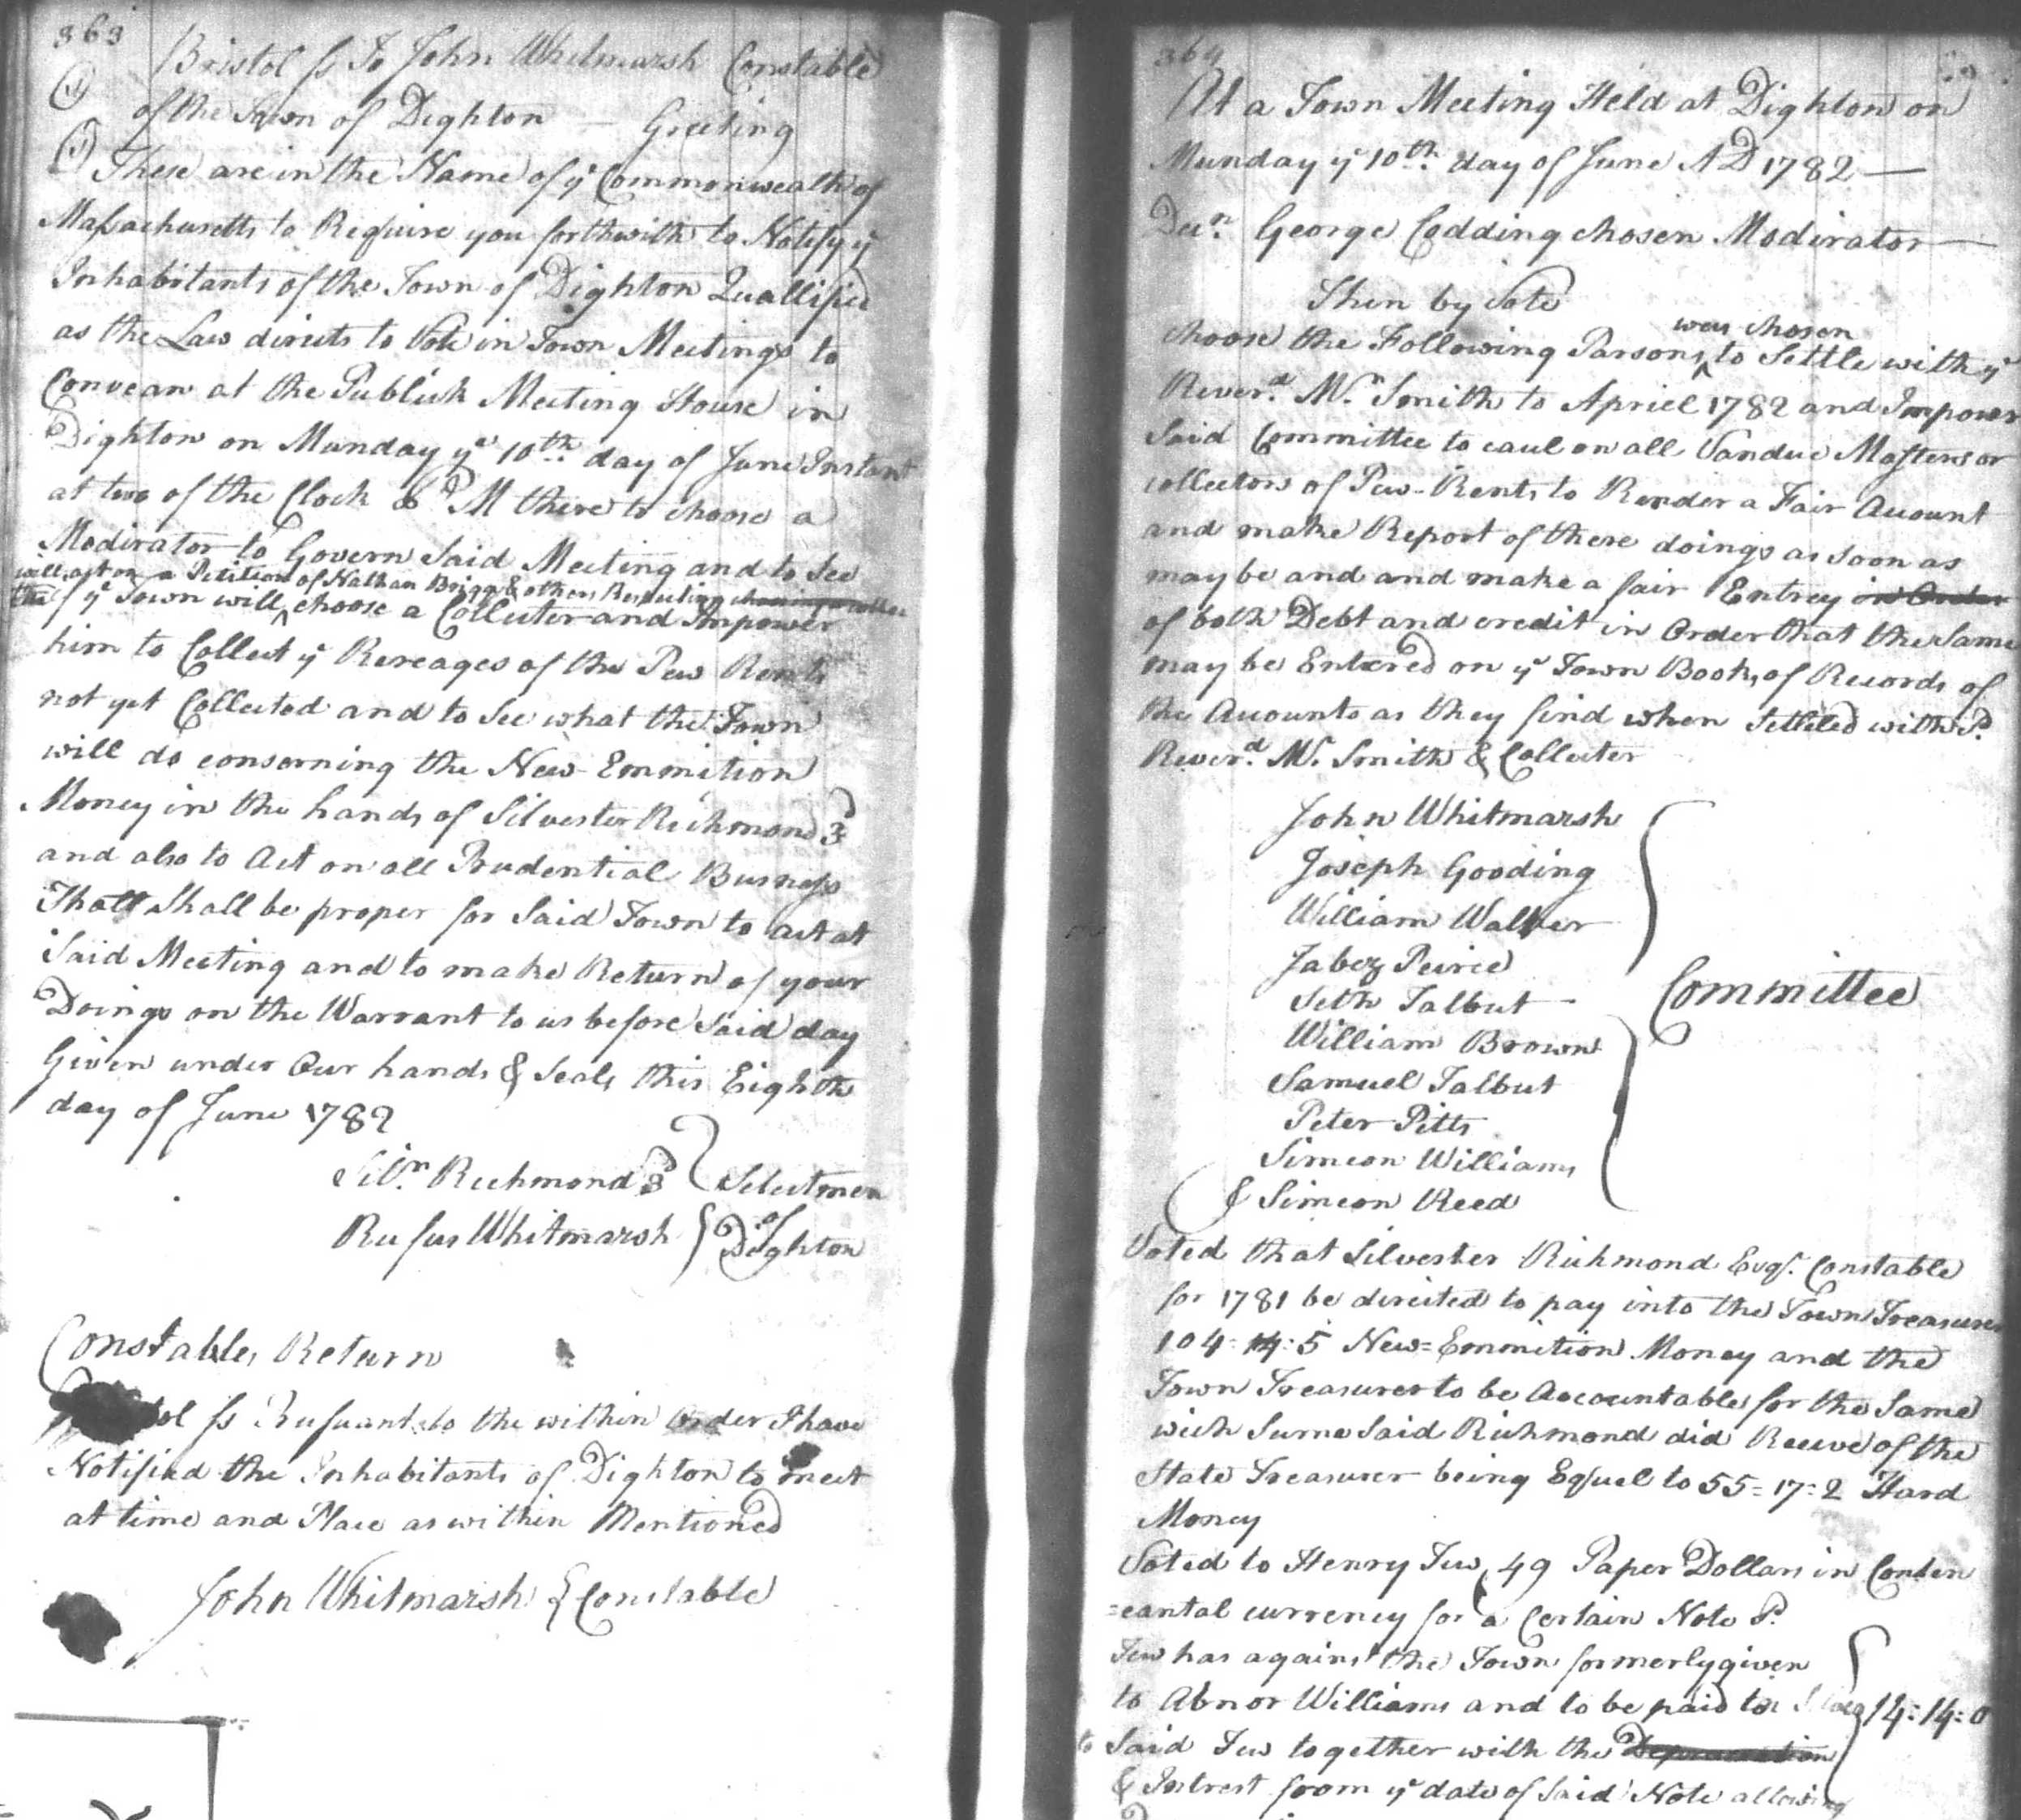 363
Bristol ss To John Whitmarsh Constable
of the Town of Dighton — Greeting
These are in the Name of ye Commonwealth of
Massachusetts to Require you forthwith to Notify ye
Inhabitants of the Town of Dighton Quallified
as the Law directs to Vote in Town Meetings to
Convean at the Publick Meeting House in
Dighton on Munday ye 10th day of June Instant
at two of the Clock P M there to choose a
Modirator to Govern Said Meeting and to See
will act on a Petition of Nathan Brigg & others Respecting
if ye Town will choose a Collecter and Impower
him to Collect ye Rereages of the Pew Rents
not yet Collected and to See what the Town
will do conserning the New Emmition
Money in the hands of Silvester Richmond 3d
and also to Act on all Prudential Business
Thatt Shall be proper for Said Town to act at
Said Meeting and to make Return of your
Doings on the Warrant to us before Said day
Given under Our hands & Seals this Eighth
day of June 1782
Silvr Richmond 3d } Selectmen
Rufus Whitmarsh } of Dighton
Constables Return
ol ss Pursuant to the within Order I have
Notified the Inhabitants of Dighton to meet
at time and Place as within Mentioned
John Whitmarsh } Constable
364
At a Town Meeting Held at Dighton on
Munday ye 10th day of June AD 1782 —
Decn George Codding chosen Modirator —
Then by Vote
was chosen
choose the Following Parsons ^ to Settle with ye
Reverd Mr Smith to Apriel 1782 and Impower
Said Committee to caul on all Vandue Masters or
collectors of Pew-Rents to Render a Fair Acount
and make Report of there doings as soon as
may be and and make a fair Entrey in Order
of both Debt and credit in Order that the Same
may be Entered on ye Town Books of Records of
the Acounts as they find when Settled with Sd
Reverd Mr Smith & Collecter
John Whitmarsh
Joseph Gooding
William Walker
Jabez Peirce
Seth Talbut
Committee
William Brown
Samuel Talbut
Peter Pitts
Simeon Williams
& Simeon Reed
Voted that Silvester Richmond Esqr. Constable
for 1781 be directed to pay into the Town Treasurer
104:14:5 New=Emmition Money and the
Town Treasurer to be Accountable for the Same
wich Sume Said Richmond did Receve of the
State Treasurer being Equel to 55=17=2 Hard
Money
Voted to Henry Tew 49 Paper Dollars in Conten
=eantal currency for a Certain Note Sd
Tew has against the Town formerly given
to Abnor Williams and to be paid 14:14:0
to Said Tew together with the Depreciation
& Intrest from ye date of Said Note allowing